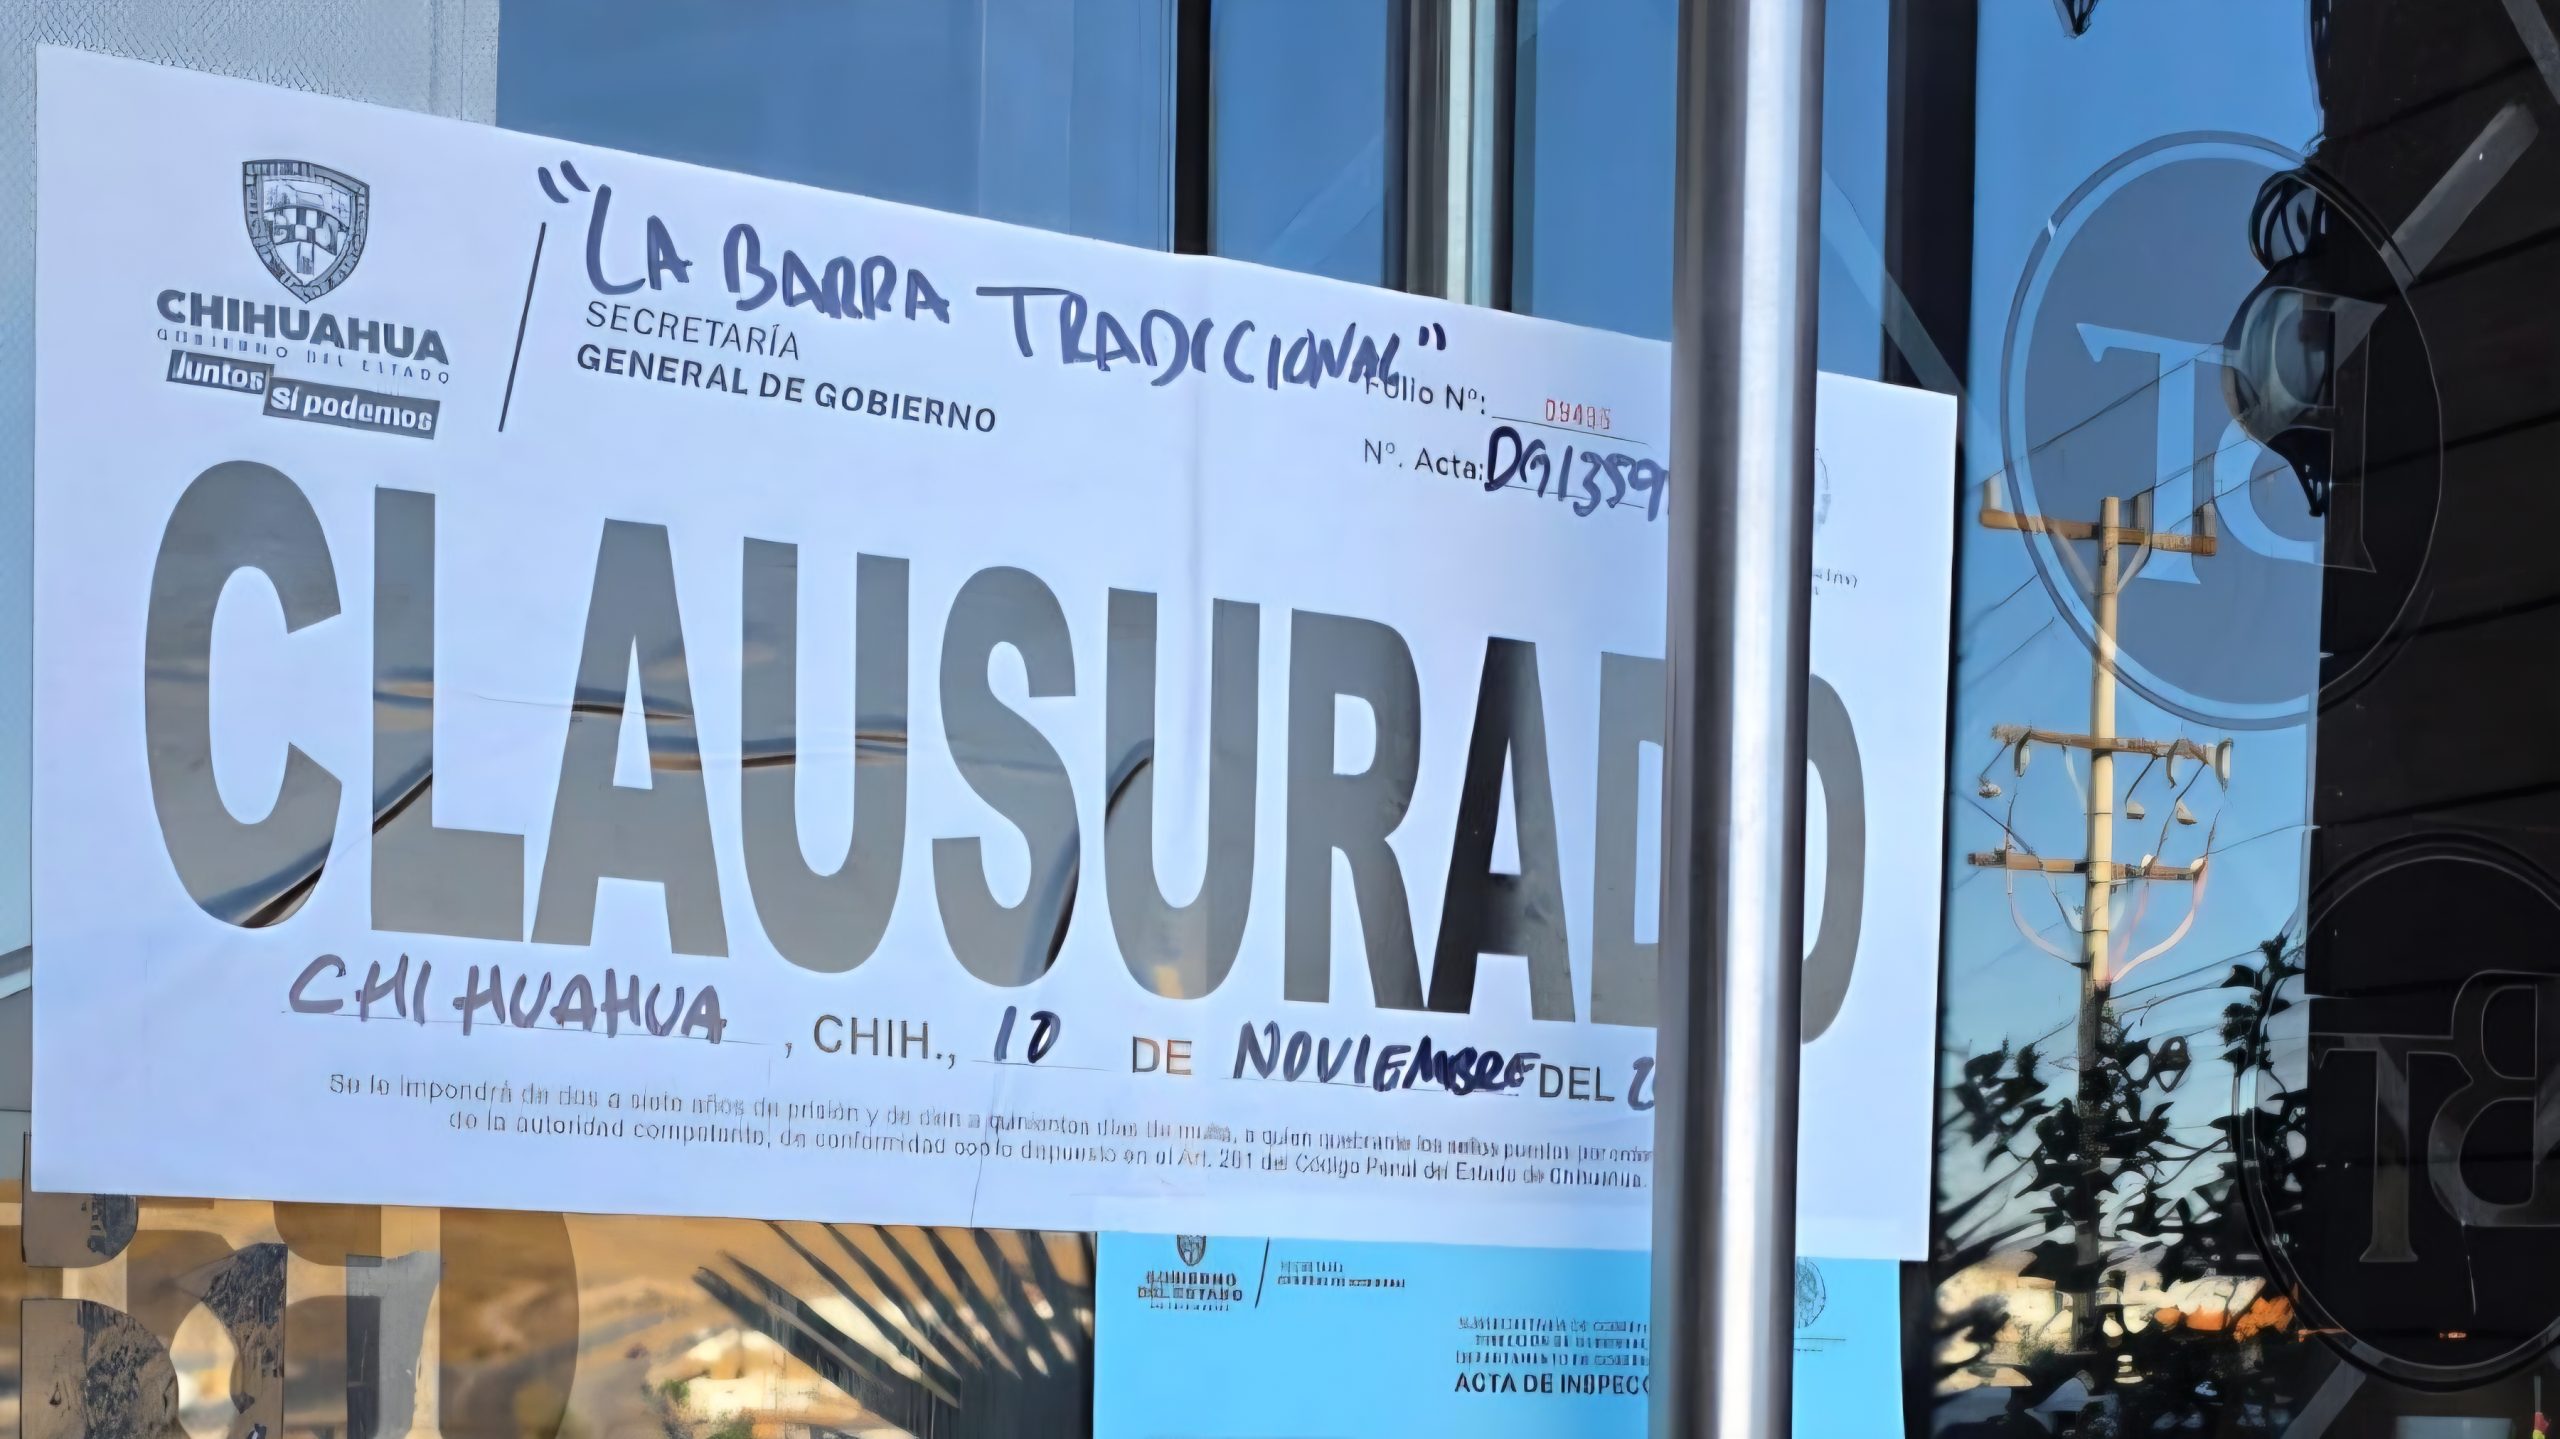 "LA BARRA TRADICIONAL"
CHIHUAHUA
GOBIERNO DEL ESTADO
Juntos
Sí podemos
SECRETARÍA
GENERAL DE GOBIERNO
Folio Nº:
Nº. Acta: DG1359
CLAUSURADO
CHIHUAHUA, CHIH., 10 DE NOVIEMBRE DEL 2
Se le impondrá de dos a siete años de prisión y de cien a quinientos días de multa, a quien quebrante los sellos puestos por
de la autoridad competente, de conformidad con lo dispuesto en el Art. 201 del Código Penal del Estado de Chihuahua.
GOBIERNO
DEL ESTADO
ACTA DE INSPECC
BT
BT